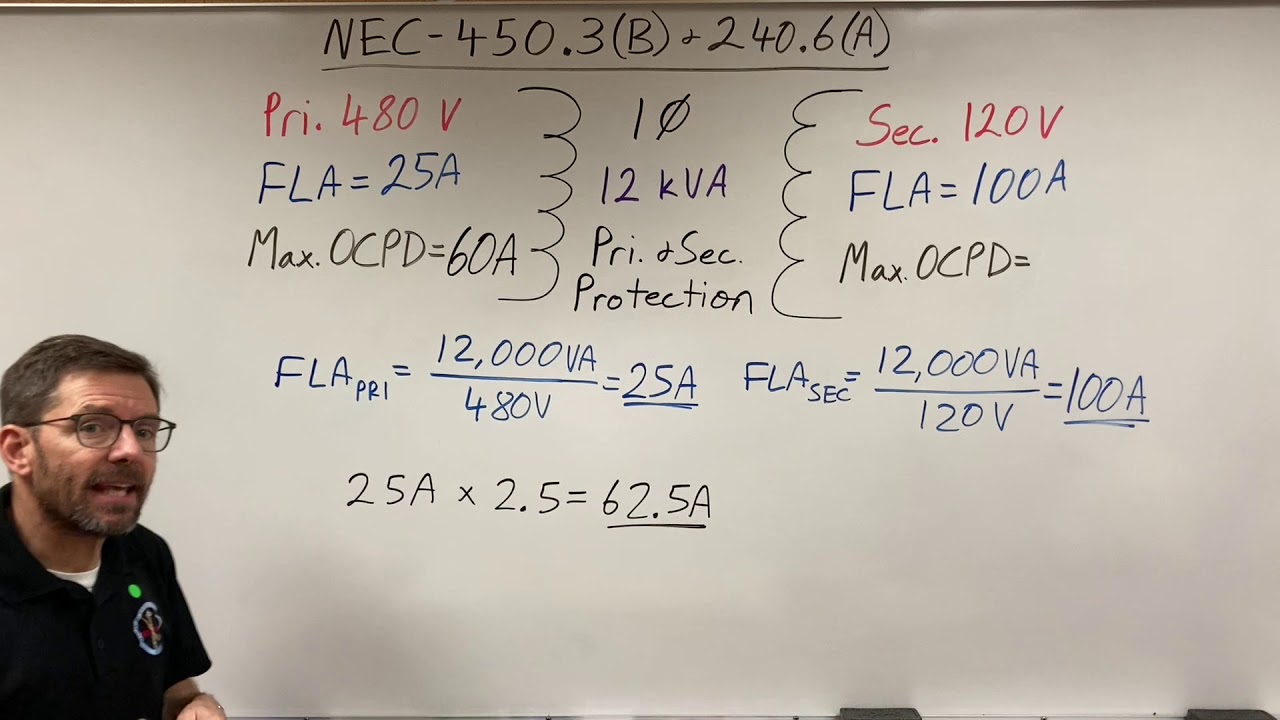 NEC-450.3(B) & 240.6(A)
Pri. 480 V
FLA = 25A
Max. OCPD = 60A
1Ø
12 kVA
Pri. & Sec.
Protection
Sec. 120V
FLA = 100A
Max. OCPD =
FLA PRI = 12,000VA / 480V = 25A
FLA SEC = 12,000VA / 120V = 100A
25A × 2.5 = 62.5A